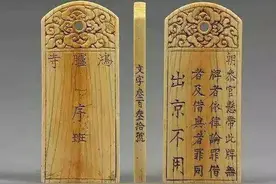 鴻臚寺
序班
文字叁百叁拾號
朝參官懸帶此牌無
牌者依律論罪借
者及借與者罪同
出京不用